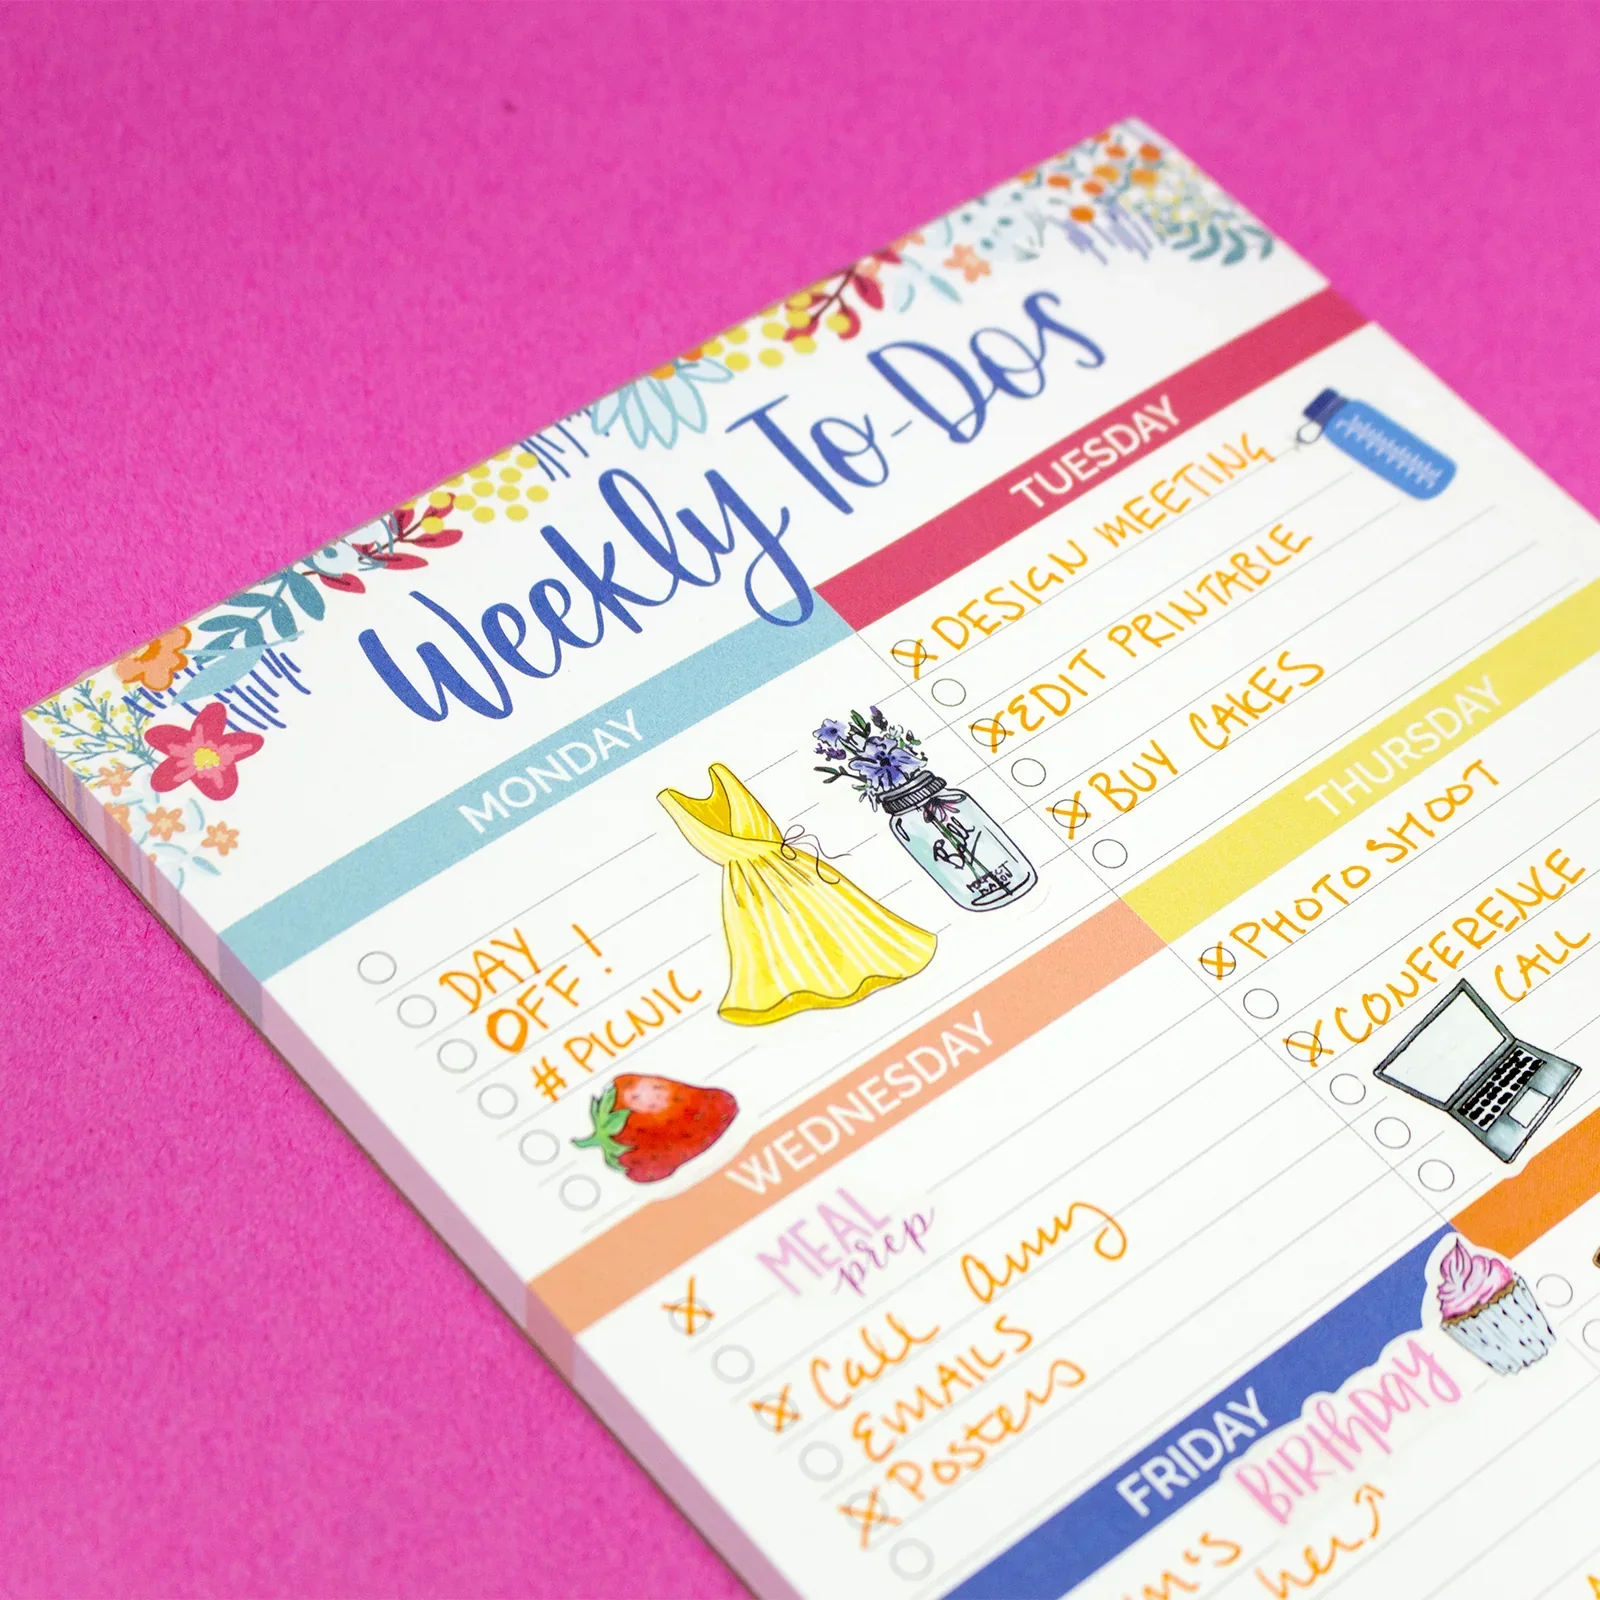 Weekly To-Dos
MONDAY
DAY
OFF!
#PICNIC
Ball
PERFECT
MASON
TUESDAY
DESIGN MEETING
EDIT PRINTABLE
BUY CAKES
WEDNESDAY
MEAL
prep
Call Amy
EMAILS
Posters
THURSDAY
PHOTO SHOOT
CONFERENCE
CALL
FRIDAY
BIRTHDAY